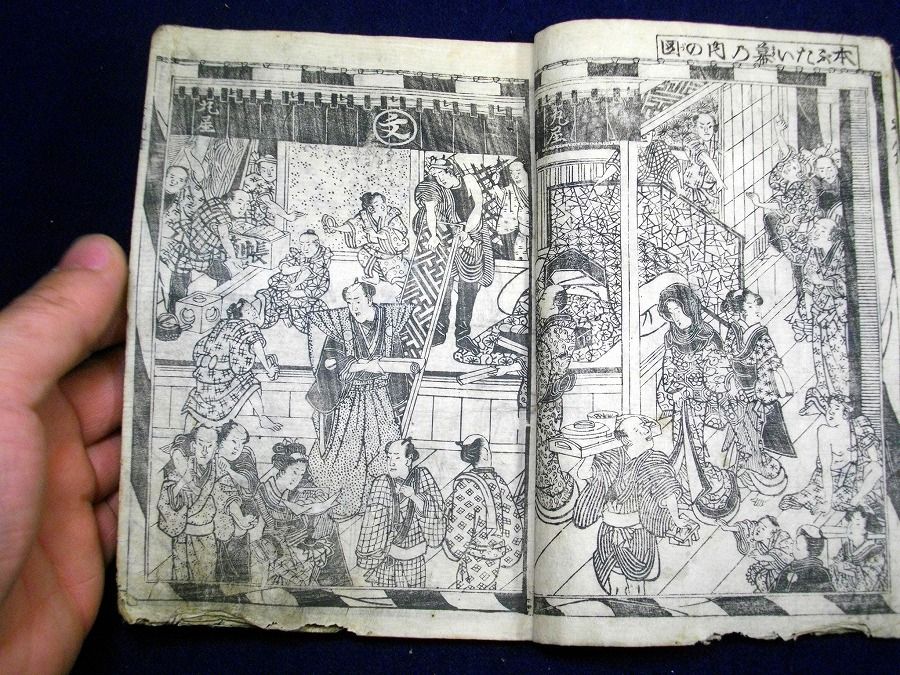 本ぶたい幕乃内の図
丸屋
文
丸屋
帳